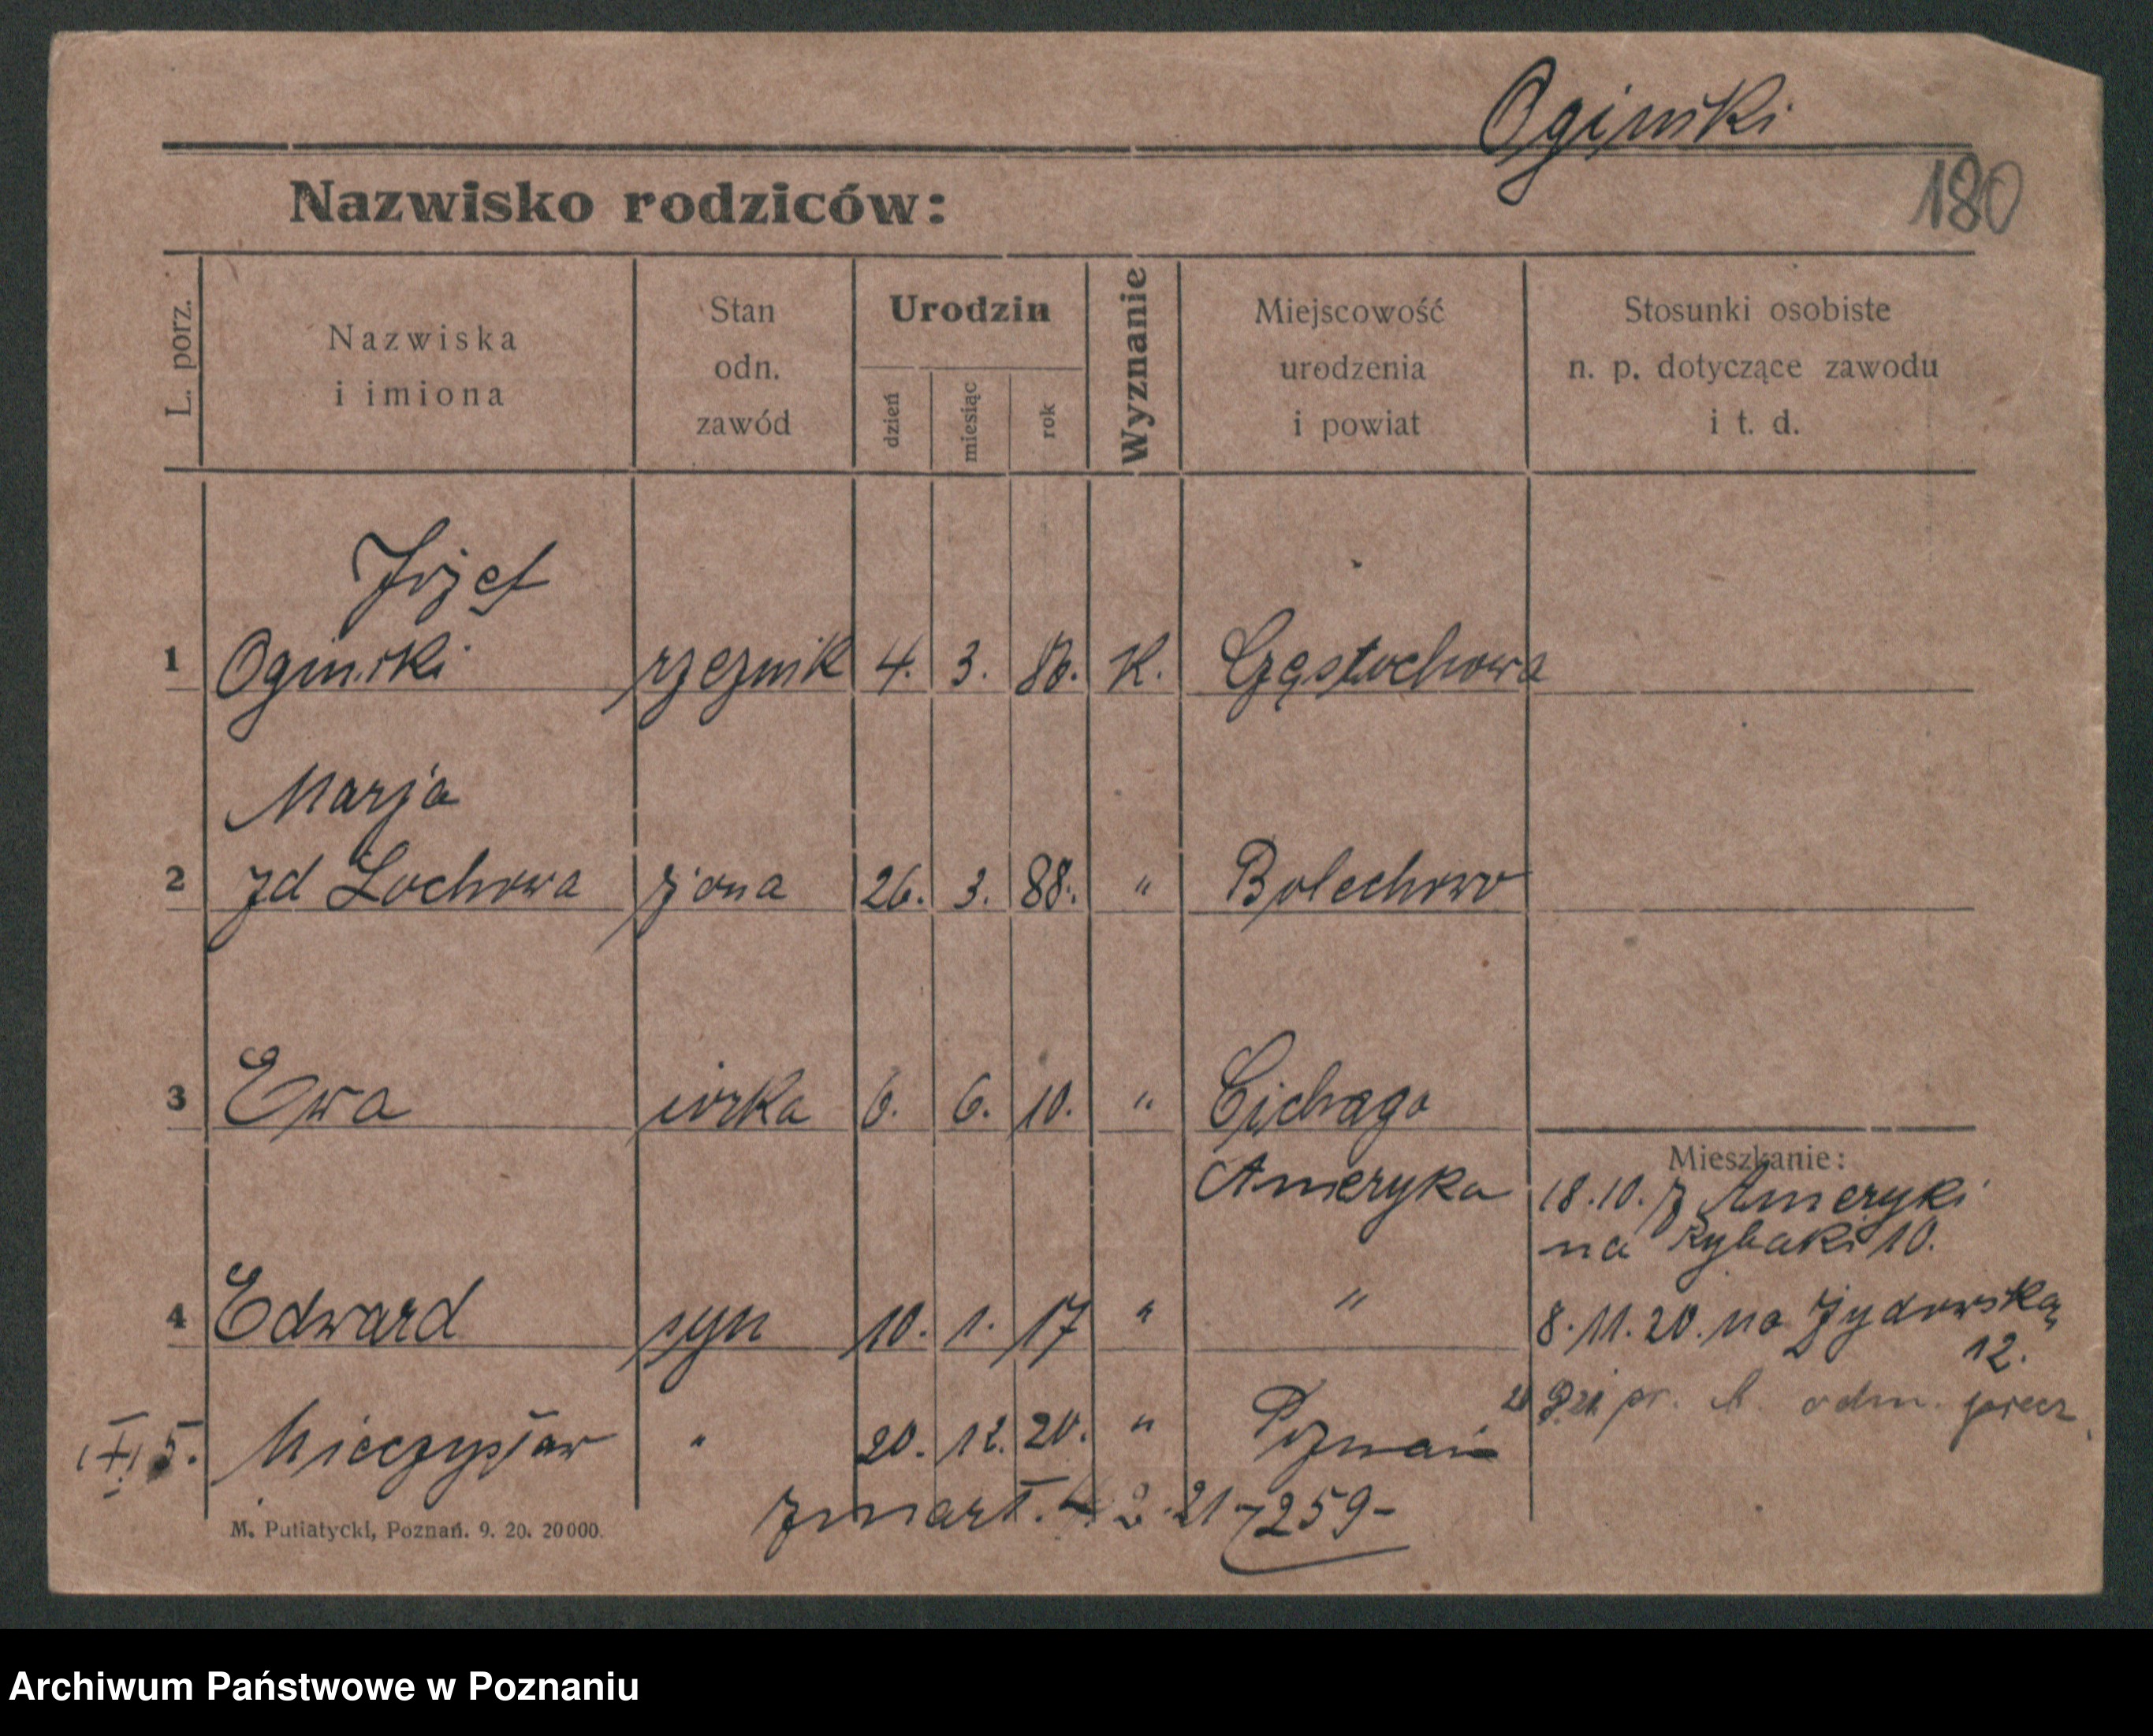 Oginski
180
Nazwisko rodziców:
L. porz.
Nazwiska
i imiona
Stan
odn.
zawód
Urodzin
dzień
miesiąc
rok
Wyznanie
Miejscowość
urodzenia
i powiat
Stosunki osobiste
n. p. dotyczące zawodu
i t. d.
Józef
1 Oginski rzeznik 4. 3. K. Częstochowa
Marja
2 zd Lochowa żona 26. 3. 88. " Bolechowo
3 Ewa córka 6. 6. 10. " Cichago
Mieszkanie:
Ameryka 18.10. z Ameryki
na Rybaki 10.
4 Edward syn 10. 1. 17 " " 8.11.20. na Żydowską
12.
odm.
5. Mieczysław " 20. 12. 20. " Poznań
zmarł. 2.21 259-
M. Putiatycki, Poznań. 9. 20. 20000.
Archiwum Państwowe w Poznaniu